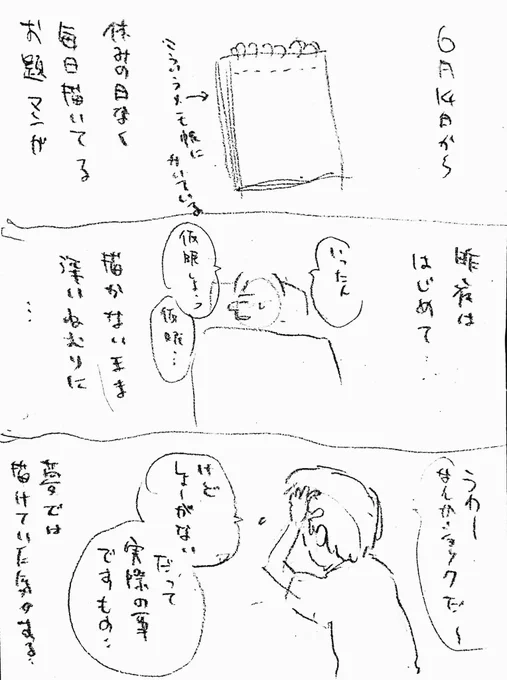 6月14日から
こういうメモ帳に
かいている
休みの日なく
毎日描いてる
お題マンガ
昨夜は
はじめて…
いったん
仮眠しよっ
仮眠…
描かないまま
深いねむりに
…
うわー
なんかショックだ〜
けど
しょーがない
だって
実際の事
ですもの…
夢では
描けていた気がする…